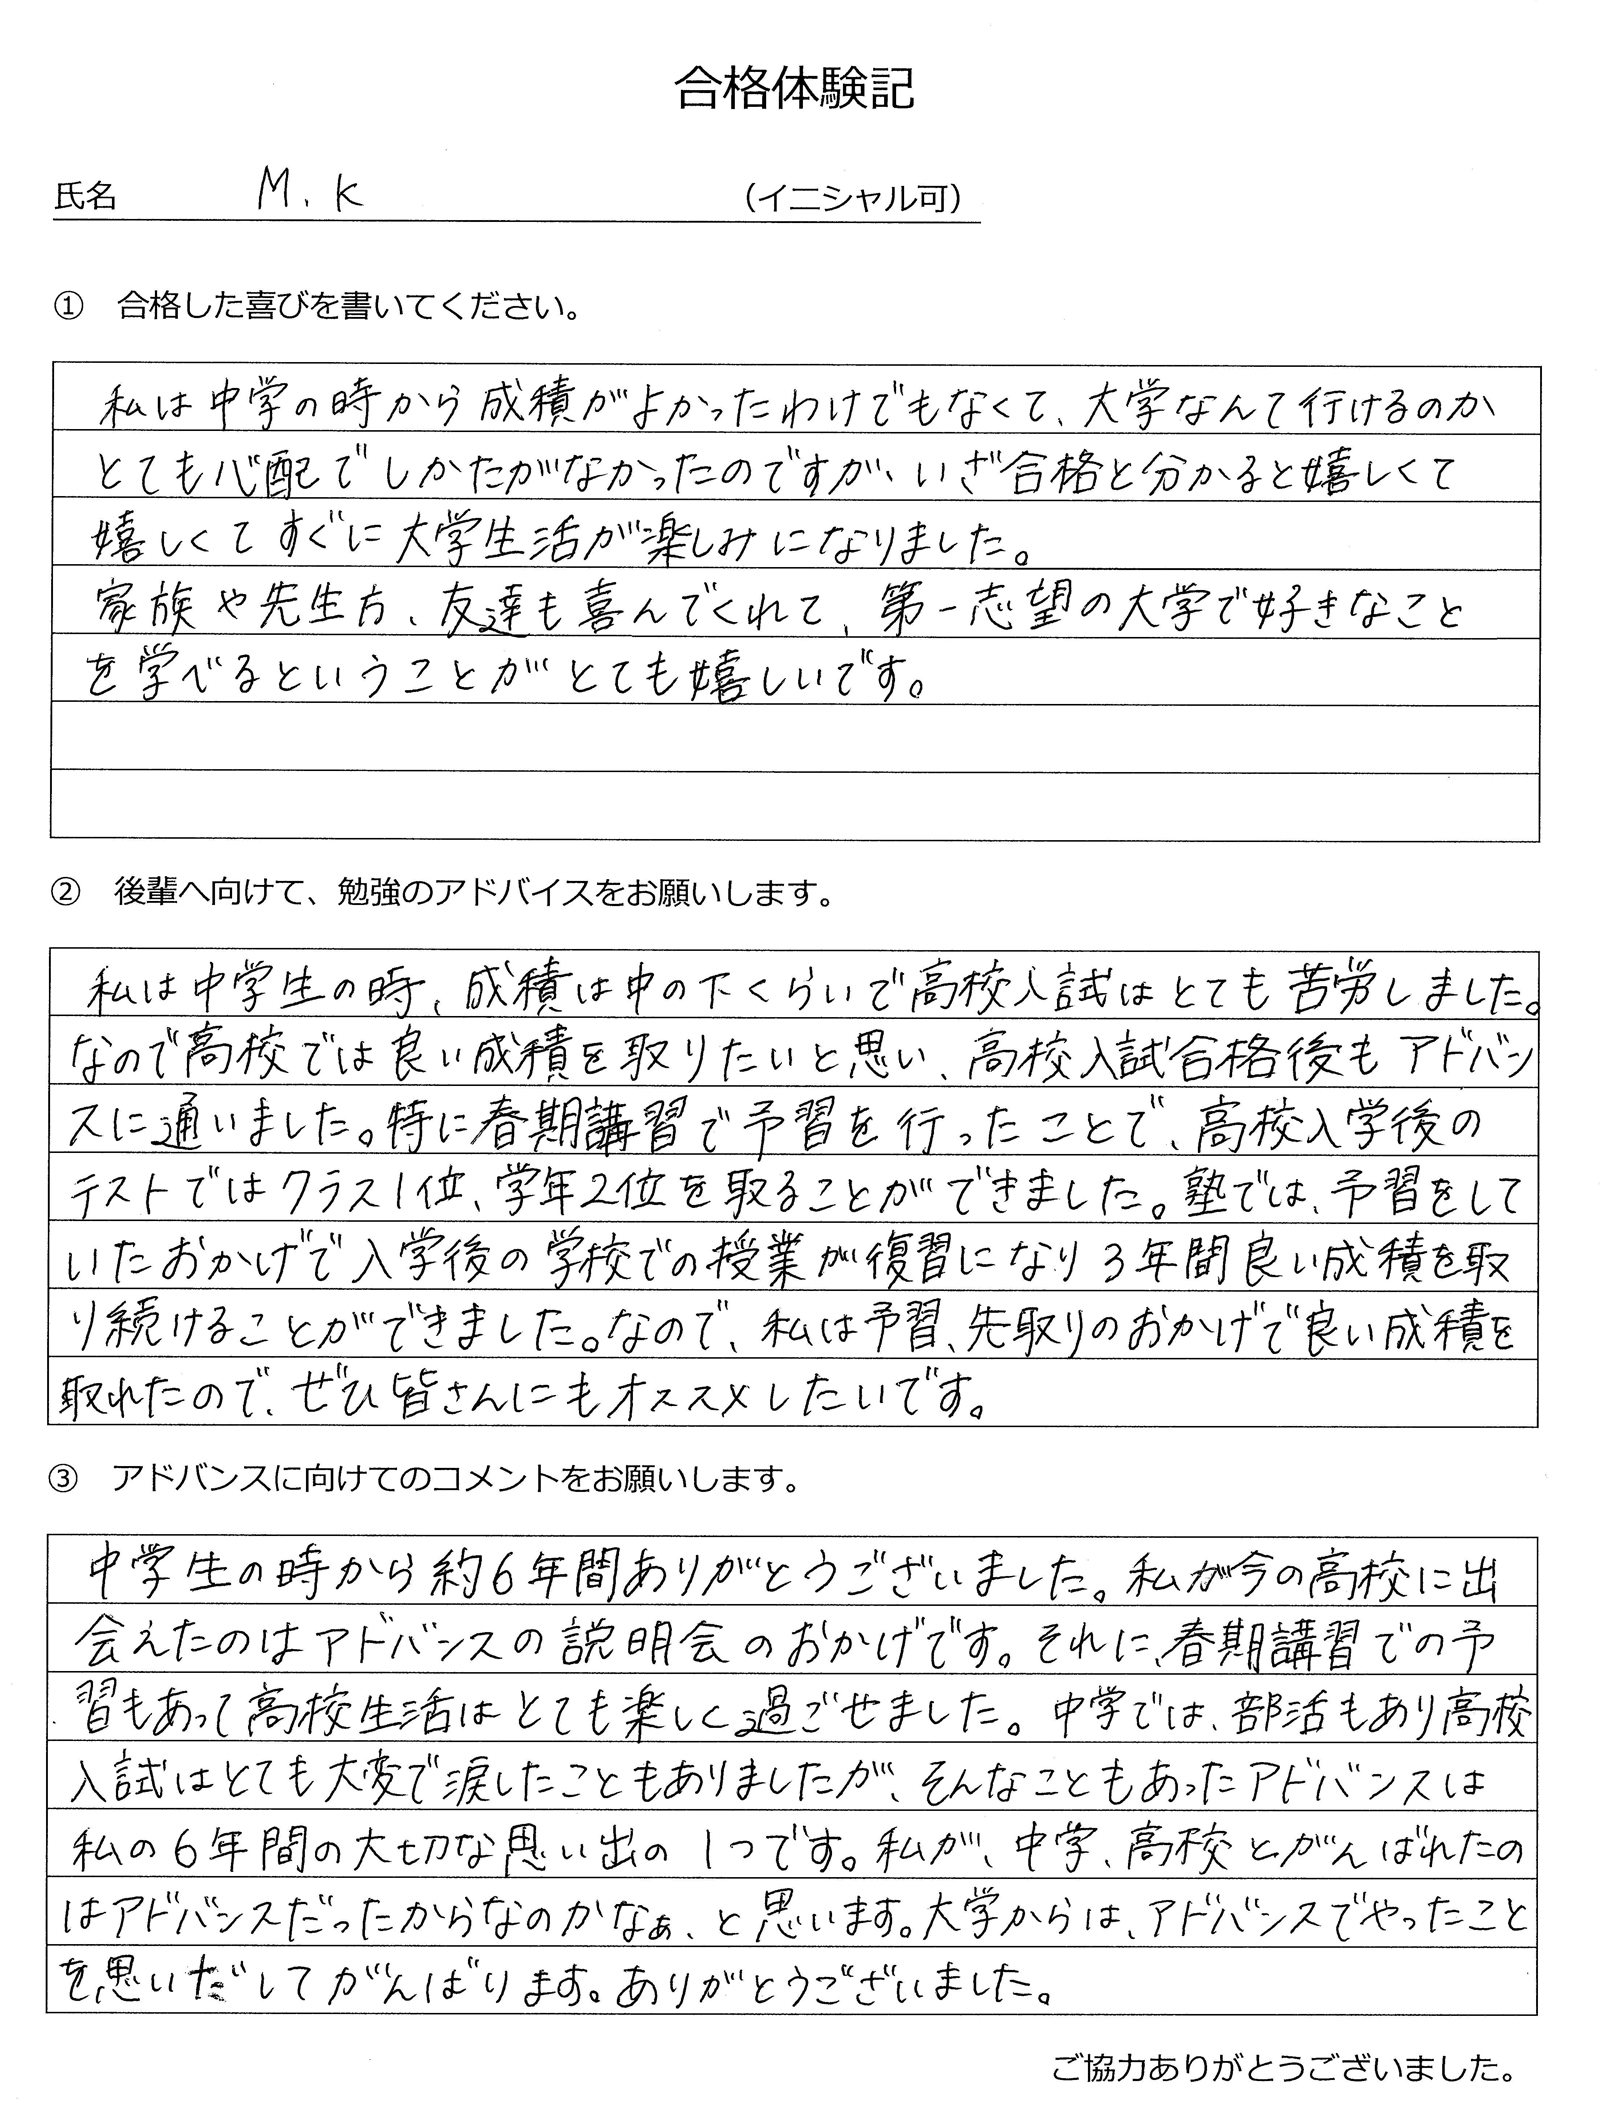 合格体験記
氏名 M.K （イニシャル可）
① 合格した喜びを書いてください。
私は中学の時から成績がよかったわけでもなくて、大学なんて行けるのか
とても心配でしかたがなかったのですが、いざ合格と分かると嬉しくて
嬉しくてすぐに大学生活が楽しみになりました。
家族や先生方、友達も喜んでくれて、第一志望の大学で好きなこと
を学べるということがとても嬉しいです。
② 後輩へ向けて、勉強のアドバイスをお願いします。
私は中学生の時、成績は中の下くらいで高校入試はとても苦労しました。
なので高校では良い成績を取りたいと思い、高校入試合格後もアドバン
スに通いました。特に春期講習で予習を行ったことで、高校入学後の
テストではクラス1位、学年2位を取ることができました。塾では、予習をして
いたおかげで入学後の学校での授業が復習になり3年間良い成績を取
り続けることができました。なので、私は予習、先取りのおかげで良い成績を
取れたので、ぜひ皆さんにもオススメしたいです。
③ アドバンスに向けてのコメントをお願いします。
中学生の時から約6年間ありがとうございました。私が今の高校に出
会えたのはアドバンスの説明会のおかげです。それに、春期講習での予
習もあって高校生活はとても楽しく過ごせました。中学では、部活もあり高校
入試はとても大変で涙したこともありましたが、そんなこともあったアドバンスは
私の6年間の大切な思い出の1つです。私が、中学、高校とがんばれたの
はアドバンスだったからなのかなぁ、と思います。大学からは、アドバンスでやったこと
を思いだしてがんばります。ありがとうございました。
ご協力ありがとうございました。